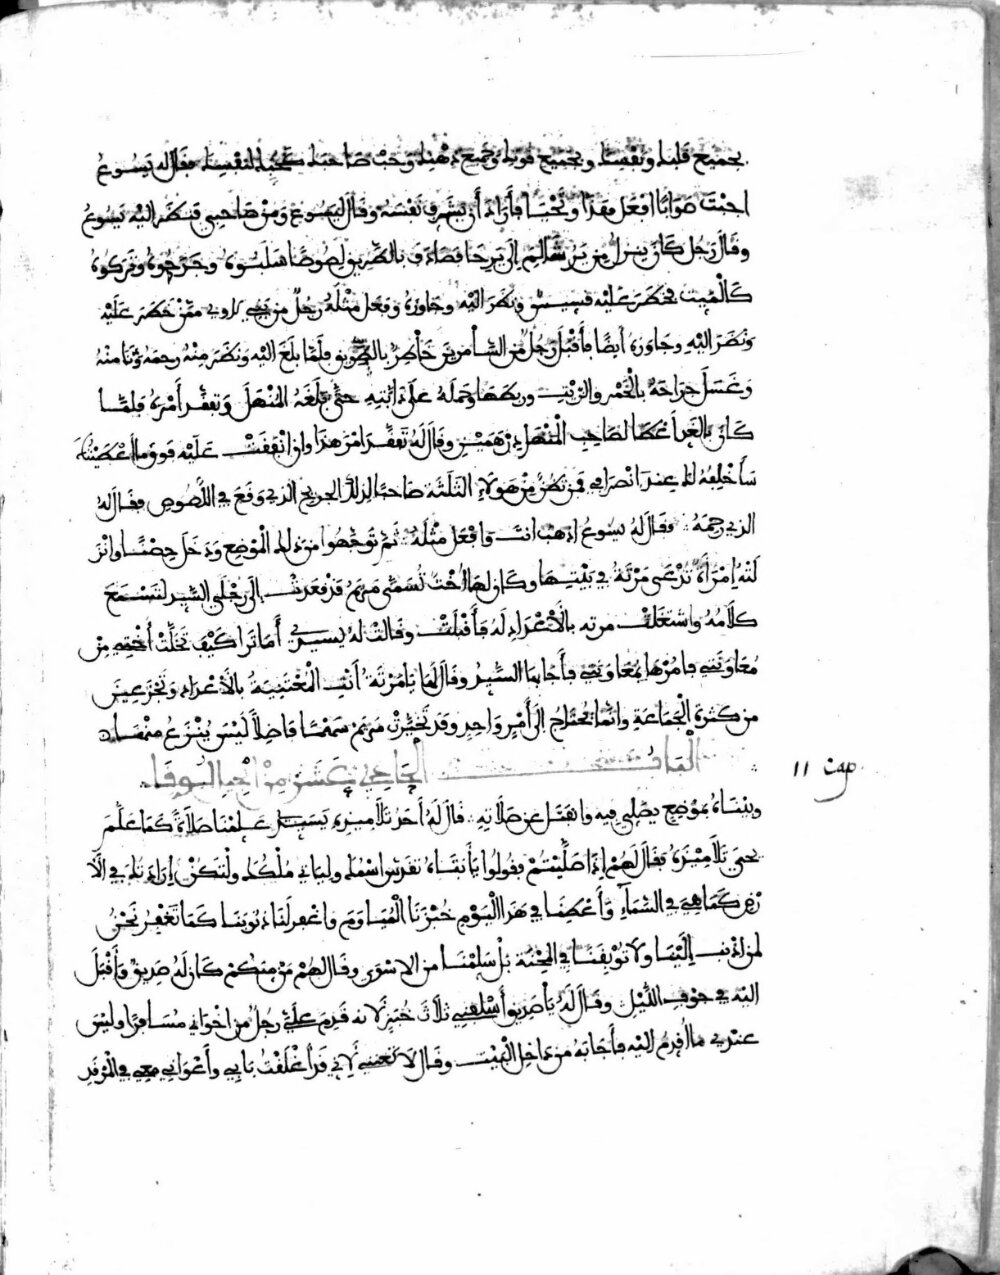 بجميع قلبك ونفسك وبجميع قوتك وجميع ذهنك وتحب صاحبك كحبك لنفسك فقال له يسوع
اجبت صوابا افعل هذا وتحيا فأراد أن يشرف نفسه وقال ليسوع ومن صاحبي فنظر اليه يسوع
وقال رجل كان ينزل من يرشالم إلى يرحا فصادف بالطريق لصوصا فسلبوه وجرحوه وتركوه
كالميت فخطر عليه قسيس ونظر اليه وجاوزه وفعل مثله رجل من بني لاوي ممن خطر عليه
ونظر اليه وجاوزه أيضا فأقبل رجل من الشامريين خاطر بالطريق فلما بلغ اليه ونظر منه رحمه ودنا منه
وغسل جراحه بالخمر والزيت وربطها وحمله على دابته حتى بلغه المنهل وتفقد أمره فلما
كان بالغد أعطا لصاحب المنهل درهمين وقال له تفقد امر هذا وان انفقت عليه فوق ما أعطيتك
سأخلفه لك عند انصرافي فمن تظن من هولاء الثلثة صاحبا لذلك الجريح الذي وقع في اللصوص فقال له
الذي رحمه فقال له يسوع اذهب انت وافعل مثله ثم توجهوا من ذلك الموضع ودخل حصنا وانز
لته امرأة تدعى مرتة في بيتها وكان لها اخت تسمى مريم قد قعدت إلى رجلي السيد لتسمع
كلامه واشتغلت مرته بالأعداد له فأقبلت وقالت له يسيدي أما ترا كيف تخلت أختي من
معاونتي فامرها بمعاونتي فأجابها السيد وقال لها يا مرتة أنت المعتنية بالأعداد وتجزعين
من كثرة الجماعة وانما يحتاج إلى أمر واحد وقد تخيرت مريم سهمًا فاضلا ليس ينزع منها
الباب الحادي عشر من انجيل لوقا
وبيناه بموضع يصلي فيه وانفتل عن صلاته قال له أحد تلاميذه يسيد علمنا صلاة كما علم
يحيى تلاميذه فقال لهم إذا صليتم فقولوا يأبتاه تقدس اسمك وليات ملكك ولتكن إرادتك في الا
رض كما هي في السماء وأعطنا في هذا اليوم خبزنا القياوم واغفر لنا ذنوبنا كما نغفر نحن
لمن اذنب إلينا ولا توقفنا في المحنة بل سلمنا من الاسوى وقال لهم من منكم كان له صديق وأقبل
اليه في جوف الليل وقال له يأصديق أسلفني ثلاث خبز لانه قدم علي رجل من اخواني مسافرا وليس
عندي ما اقدم اليه فأجابه من داخل البيت وقال لا تعنني لأني قد أغلقت بابي وأعواني معي في المرقد
11 Cap